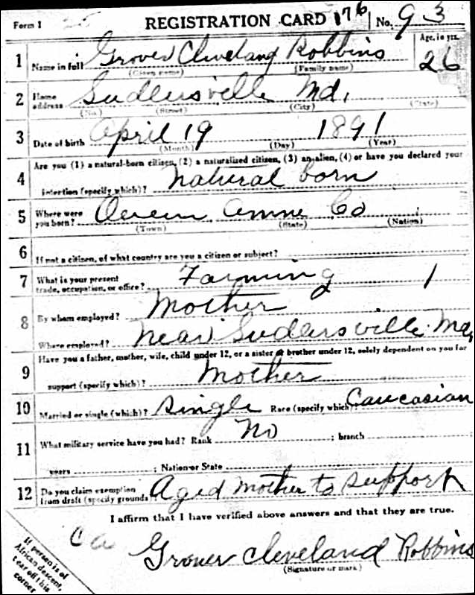 Form 1 REGISTRATION CARD 176 No. 93
Age, in yrs.
1 Grover Cleveland Robbins 26
Name in full
(Given name) (Family name)
2 Home address Sudlersville Md.
(No.) (Street) (City) (State)
3 Date of birth April 19 1891
(Month) (Day) (Year)
4 Are you (1) a natural-born citizen, (2) a naturalized citizen, (3) an alien, (4) or have you declared your
intention (specify which)? natural born
5 Where were you born? Queen Anne Co
(Town) (State) (Nation)
6 If not a citizen, of what country are you a citizen or subject?
7 What is your present trade, occupation, or office? Farming 1
8 By whom employed? Mother
Where employed? near Sudlersville Md,
9 Have you a father, mother, wife, child under 12, or a sister or brother under 12, solely dependent on you for
support (specify which)? Mother
10 Married or single (which)? Single Race (specify which) Caucasian
11 What military service have you had? Rank No ; branch
years ; Nation or State
12 Do you claim exemption from draft (specify grounds) Aged mother to support
I affirm that I have verified above answers and that they are true.
Grover Cleveland Robbins
(Signature or mark)
If person is of
African descent,
tear off this
corner